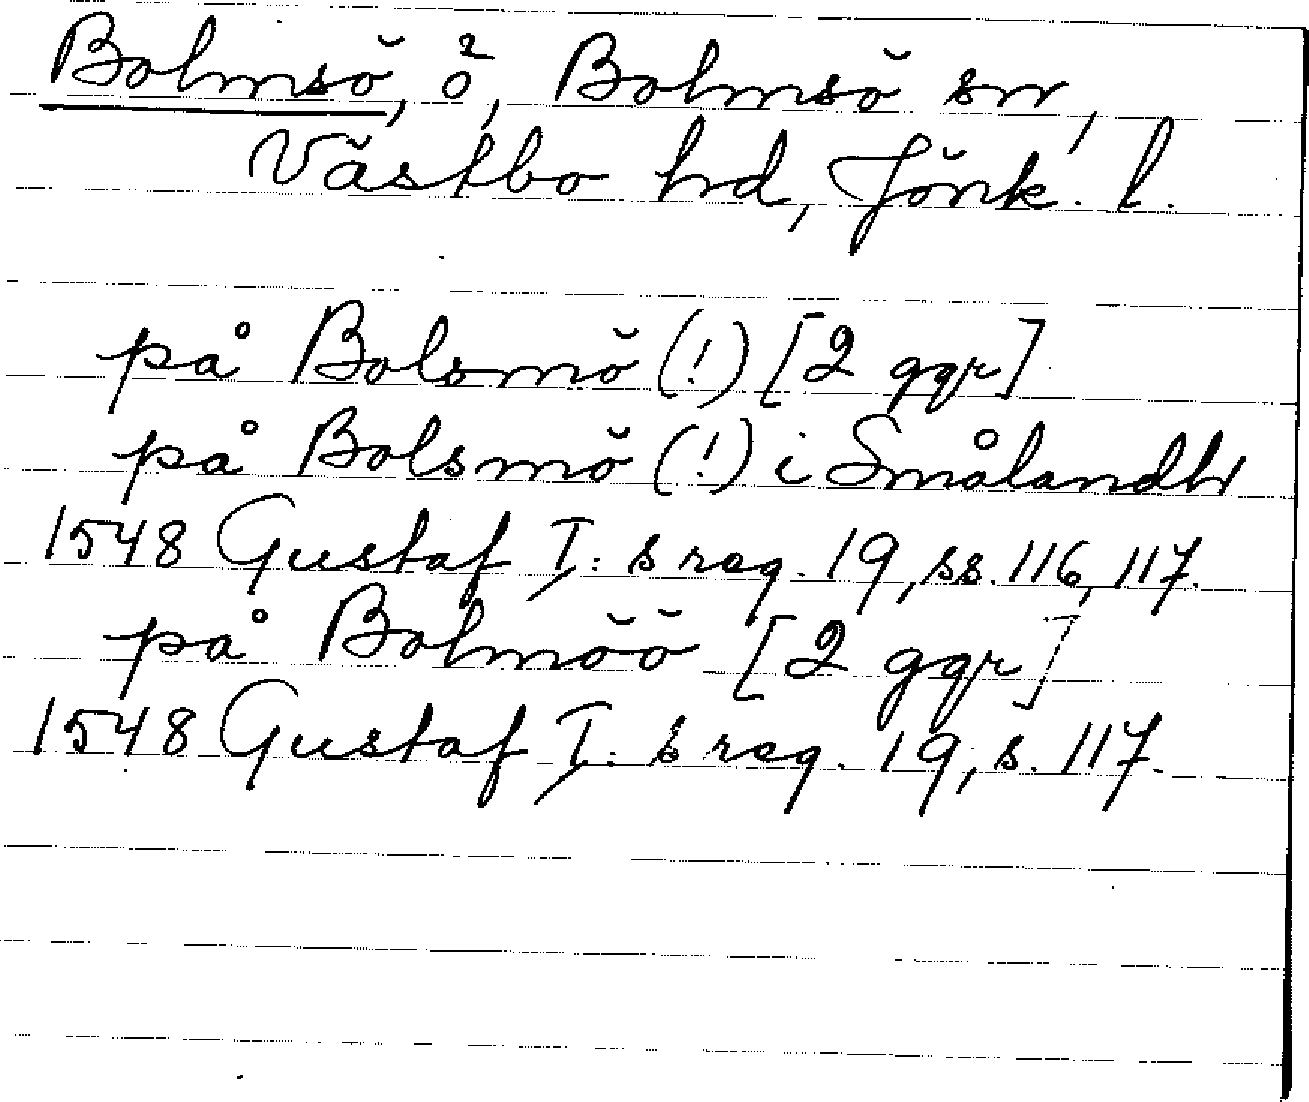 Bolmsö, ö, Bolmsö sn,
Västbo hd, Jönk. l.
på Bolsmö (!) [2 ggr]
på Bolsmö (!) i Smålandh
1548 Gustaf I: s reg. 19, ss. 116, 117.
på Bolmöö [2 ggr]
1548 Gustaf I: s reg. 19, s. 117.